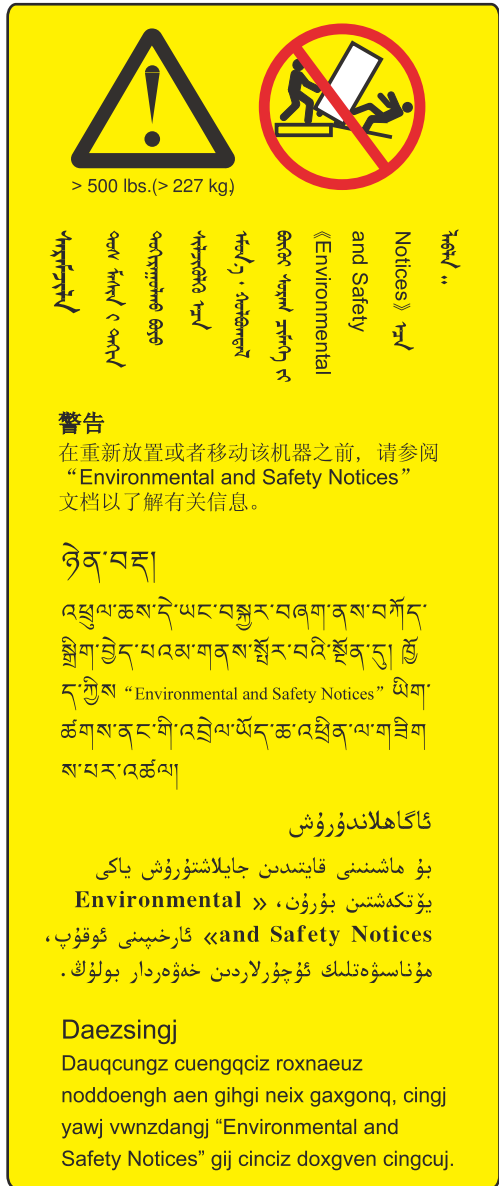 > 500 lbs.(> 227 kg.)
《Environmental
and Safety
Notices》
警告
在重新放置或者移动该机器之前，请参阅
“Environmental and Safety Notices”
文档以了解有关信息。
ཉེན་བརྡ།
འཕྲུལ་ཆས་དེ་ཡང་བསྐྱར་བཞག་ནས་བཀོད་
སྒྲིག་བྱེད་པའམ་གནས་སྤོར་བའི་སྔོན་དུ། ཁྱོ
ད་ཀྱིས “Environmental and Safety Notices” ཡིག་
ཚགས་ནང་གི་འབྲེལ་ཡོད་ཆ་འཕྲིན་ལ་གཟིག
ས་པར་འཚལ།
ئاگاھلاندۇرۇش
بۇ ماشىننى قايتىدىن جايلاشتۇرۇش ياكى
يۆتكەشتىن بۇرۇن، « Environmental
and Safety Notices» ئارخىپىنى ئوقۇپ،
مۇناسىۋەتلىك ئۇچۇرلاردىن خەۋەردار بولۇڭ.
Daezsingj
Dauqcungz cuengqciz roxnaeuz
noddoengh aen gihgi neix gaxgonq, cingj
yawj vwnzdangj “Environmental and
Safety Notices” gij cinciz doxgven cingcuj.